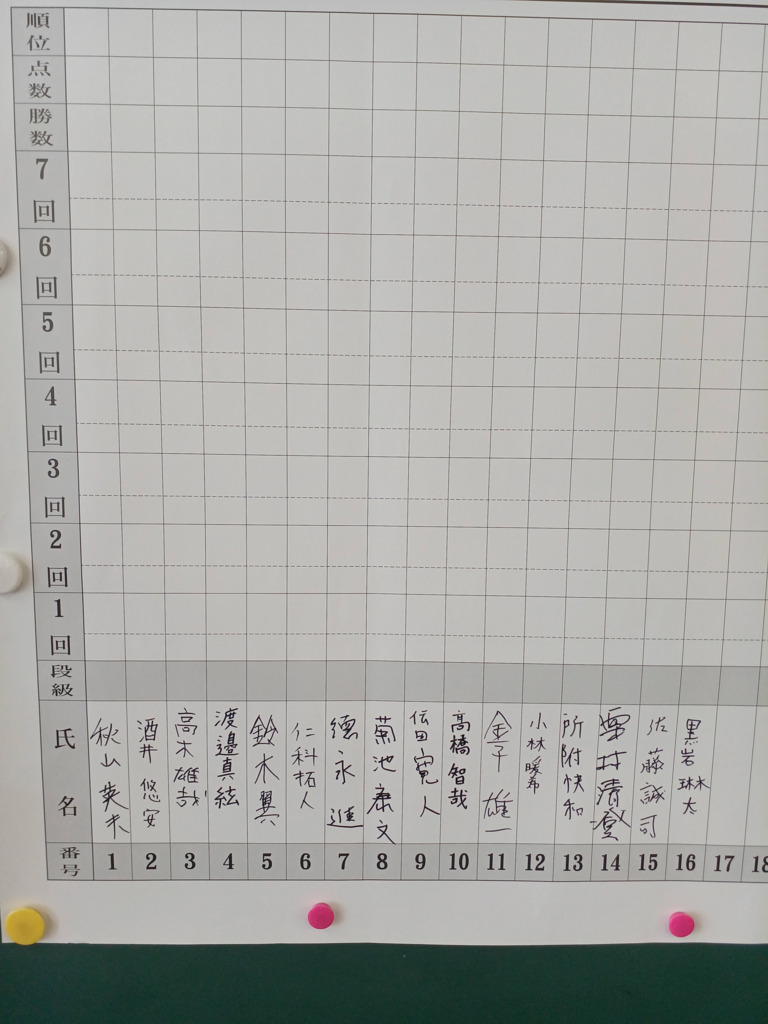 順位
点数
勝数
7回
6回
5回
4回
3回
2回
1回
段級
氏名
番号
秋山英未
1
酒井悠安
2
高木雄哉
3
渡邉真絃
4
鈴木翼
5
仁科拓人
6
德永進
7
菊池康文
8
伝田寛人
9
高橋智哉
10
金子雄一
11
小林暖希
12
所附快和
13
清澄
14
佐藤誠司
15
黒岩琳太
16
17
18